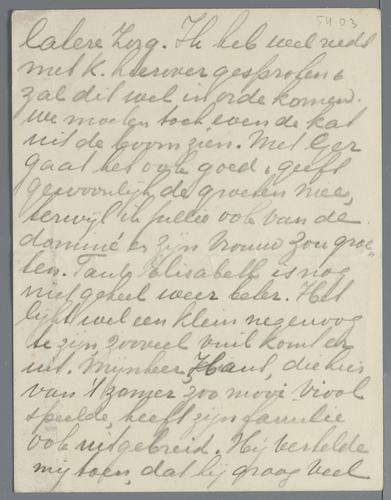 5403
latere zorg. Ik heb wel reeds
met K. hierover gesproken &
zal dit wel in orde komen.
We moeten toch even de kat
uit de boom zien. Met Ger
gaat het ook goed, geeft
gewoonlijk de groeten mee,
terwijl ik jullie ook van de
dominé en zijn vrouw zou groe-
ten. Tante Elisabeth is nog
niet geheel weer beter. Het
lijkt wel een klein negenoog
te zijn, zooveel vuil komt er
uit. Mijnheer, die hier
van 't zomer zoo mooi viool
speelde, heeft zijn familie
ook uitgebreid. Hij vertelde
mij toen, dat hij graag veel